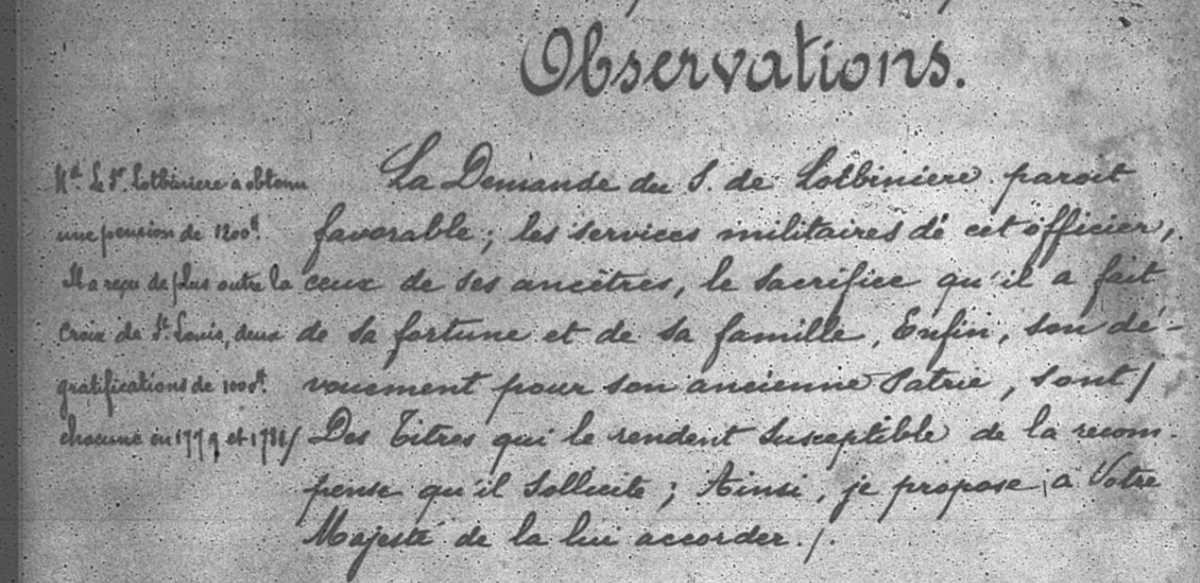 Observations.
Nta. Le Sr. Lotbiniere a obtenu
une pension de 1200#.
Il a reçu de plus outre la
croix de St. Louis, deux
gratifications de 1000#.
chacune en 1779 et 1781/
La Demande du S. de Lotbiniere paroit
favorable; les services militaires de cet officier,
ceux de ses ancêtres, le sacrifice qu'il a fait
de sa fortune et de sa famille, Enfin, son dé-
vouement pour son ancienne Patrie, sont/
Des Titres qui le rendent susceptible de la recom-
pense qu'il sollicite; Ainsi, je propose à Votre
Majesté de la lui accorder./.